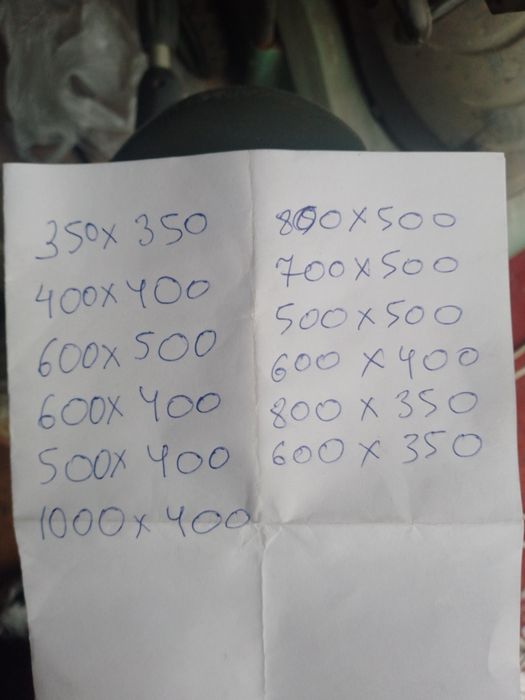 350x 350
400x 400
600x 500
600x 400
500x 400
1000x 400
800 x 500
700 x 500
500 x 500
600 x 400
800 x 350
600 x 350